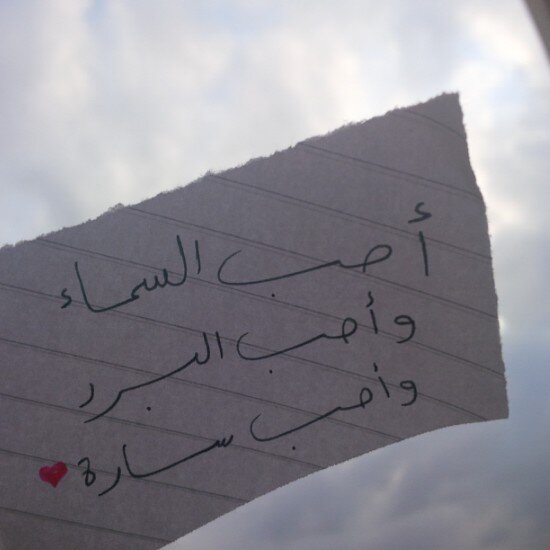 أحب السماء
وأحب البرد
وأحب سارة